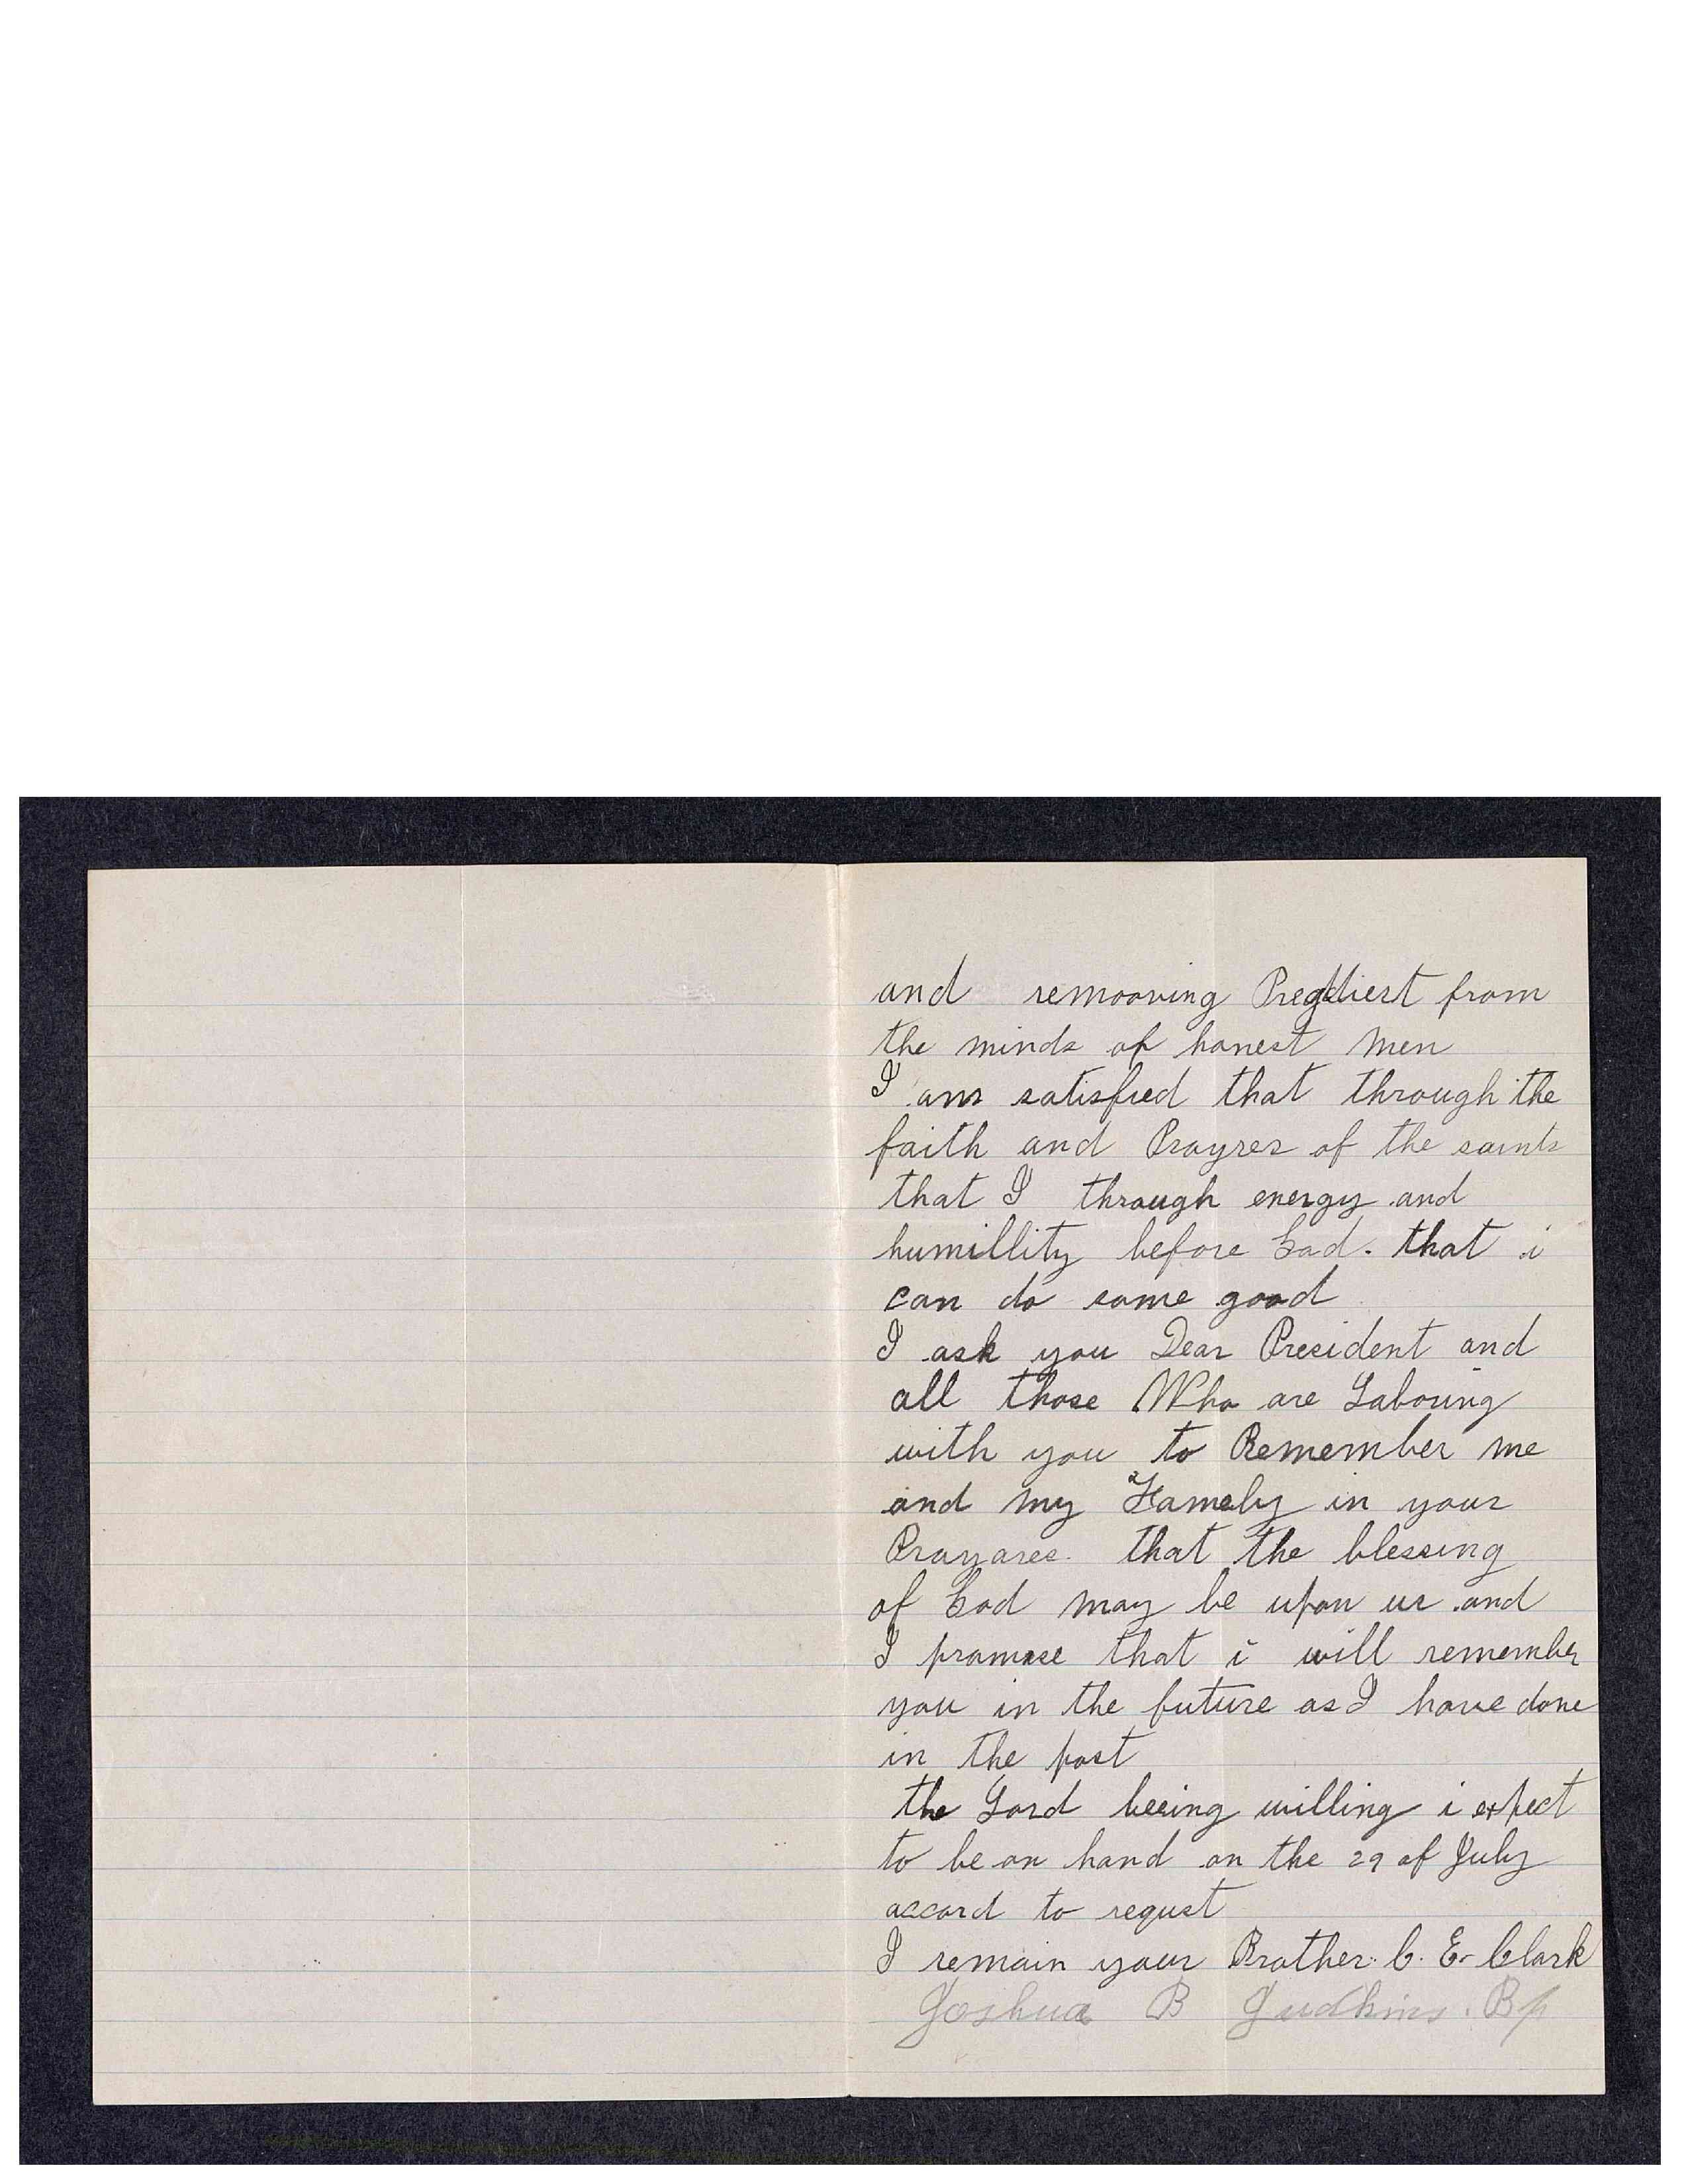 and remooving Pregdiest from
the minds of honest Men
I am satisfied that through the
faith and Prayres of the saints
that I through energy and
humillity before God. that i
can do some good
I ask you Dear President and
all those Who are Labouring
with you to Remember me
and my Famely in your
Prayares. that the blessing
of God may be upon us and
I promise that i will remember
you in the future as I have done
in the past
the Lord beeing willing i expect
to be on hand on the 29 of July
accord to requst
I remain your Brother. C. E. Clark
Joshua B Judkins. Bp